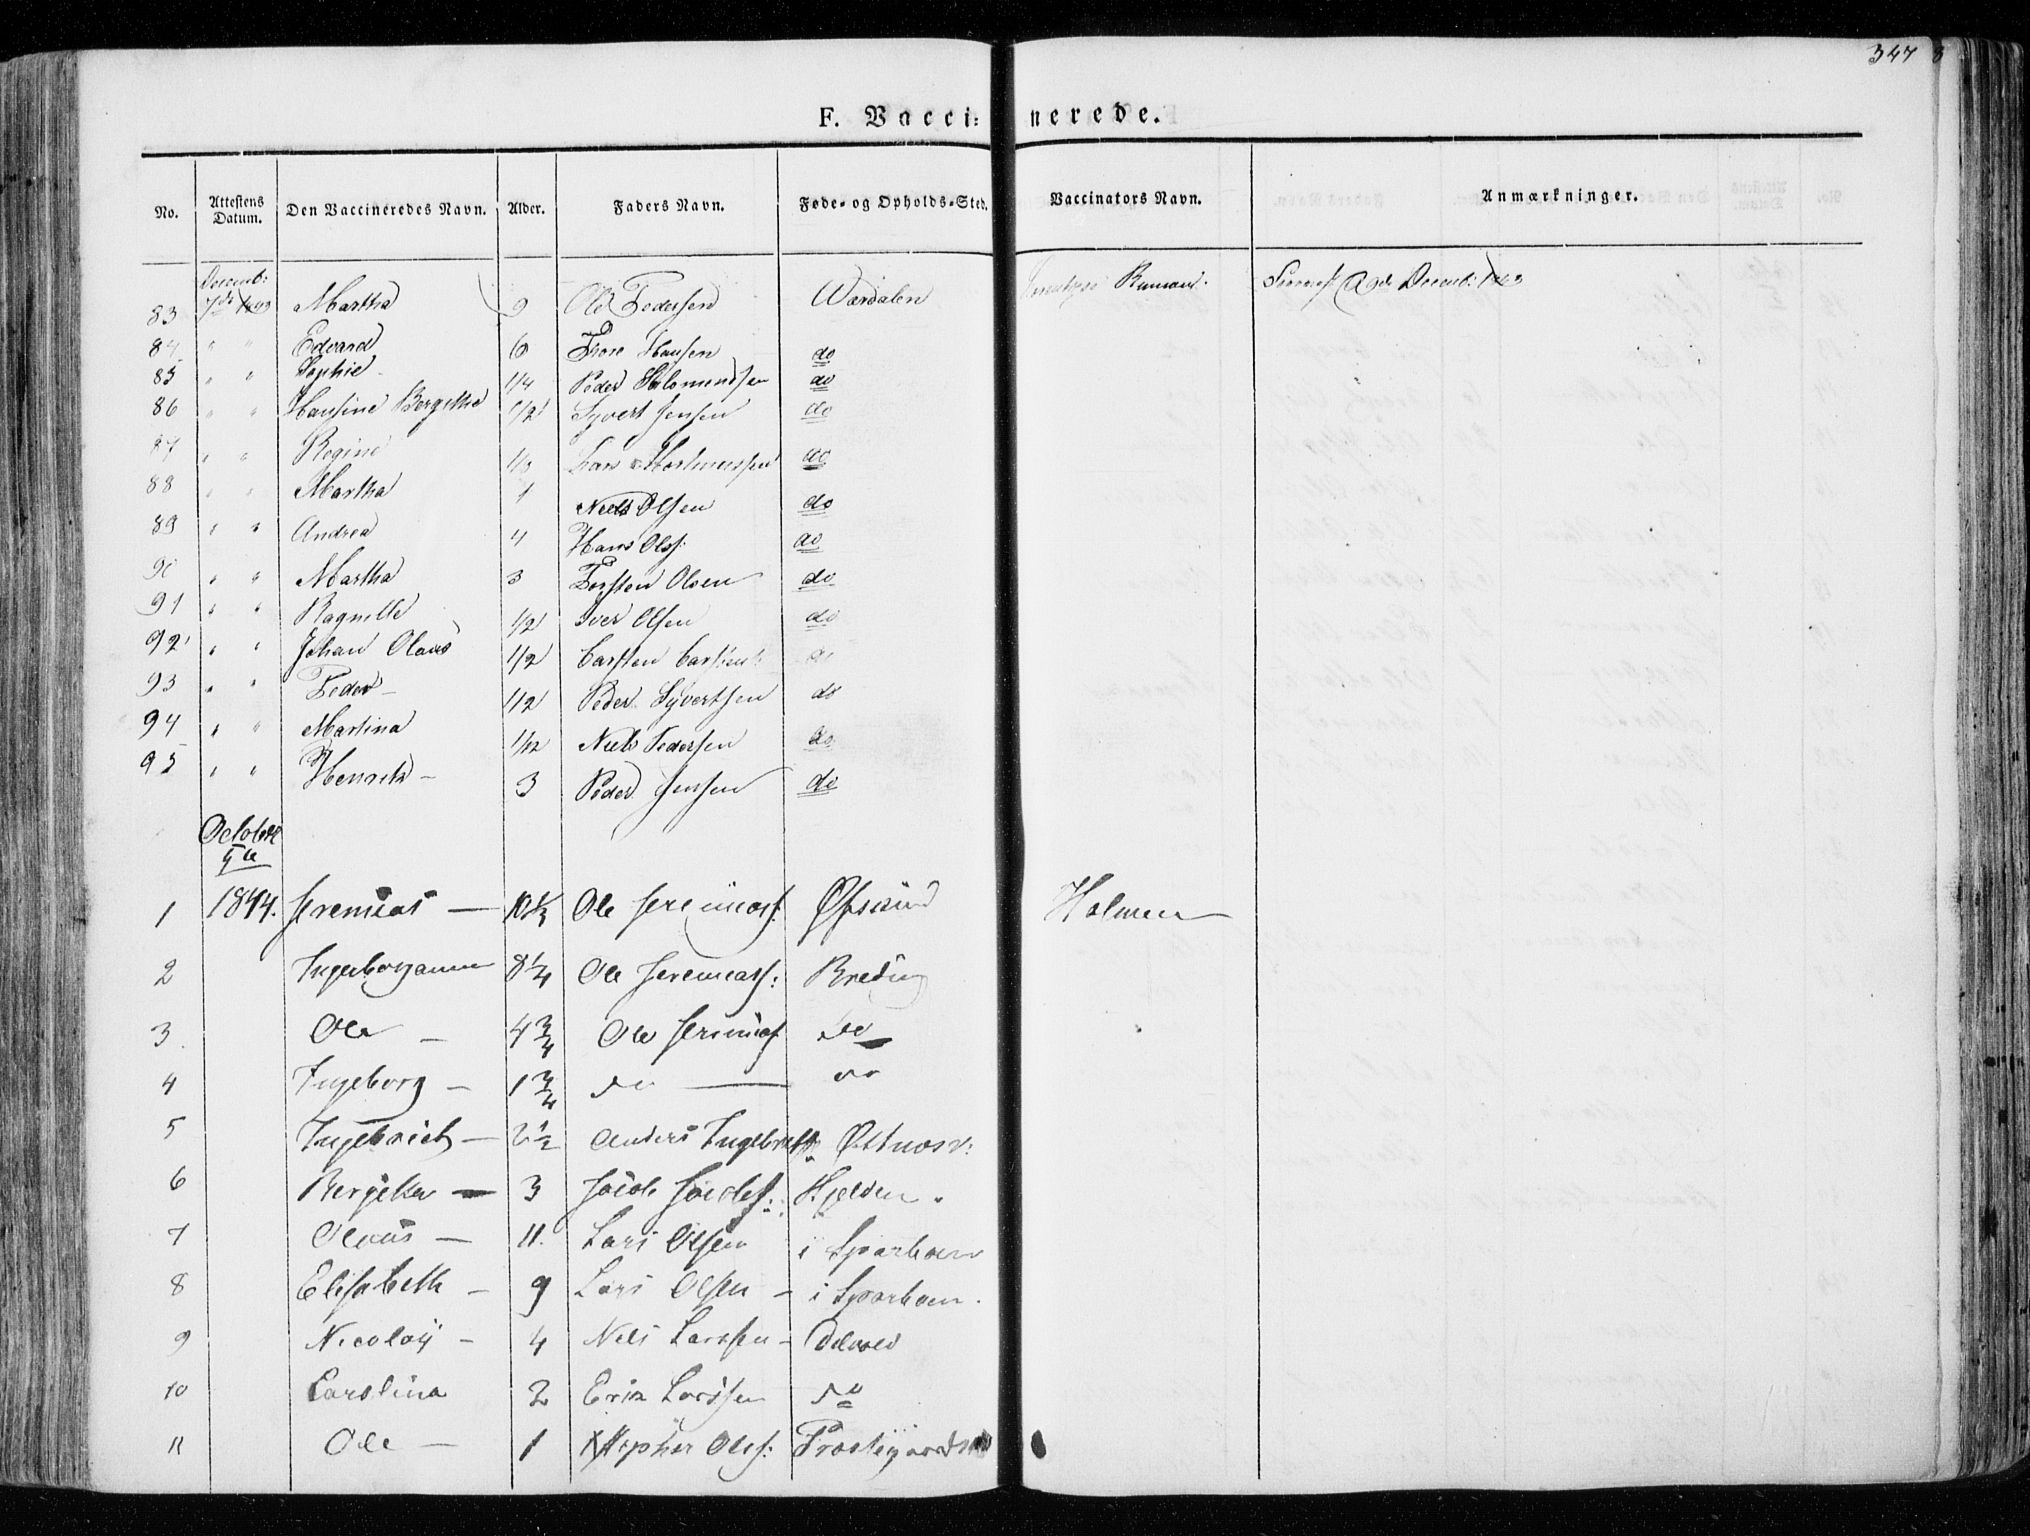 347
F. Vacci: nerede.
No. Attestens Datum. Den Vaccineredes Navn. Alder. Faders Navn. Føde- og Opholds-Sted. Vaccinators Navn. Anmærkninger.
Decemb:
83 7de Martha 9 Ole Pedersen Wærdalen
84 " " Edvard 6 Hansen do
85 " " Sophie 1/4 Peder Salomonsen do
86 " " Hansine Bergithe 1/2 Syvert Jensen do
87 " " Regine 1/3 Lars do
88 " " Martha 1 Niels Olsen do
89 " " Andrea 4 Hans Ols: do
90 " " Martha 3 Torsten Olsen do
91 " " Ragnille 1/2 Iver Olsen do
92 " " Johan Olaus 1/2 Carsten do
93 " " Peder – 1/2 Peder Syvertsen do
94 " " Martina 1/12 Niels Pedersen do
95 " " Henrik – 3 Peder Jensen do
October
1 1844. Jeremias — 10 1/2 Ole Jeremiass: Holmen
2 8 1/4 Ole Jeremiass: Breding
3. Ole – 4 3/4 Ole Jeremias do
4 Ingeborg – 1 3/4 do — do
5 Ingebrict – 2 1/2 Anders
6 Bergitha — 3 Jacob Jacobs: Hjelden.
7 Olaus – 11. Lars Olsen i Sparboen
8 Elisabeth – 9 Lars Olsen – i Sparboen.
9 Nicolaij – 4 Nels Larssen –
10 Carolina 2 Erik Larssen do
11 Ole – 1 Oles: